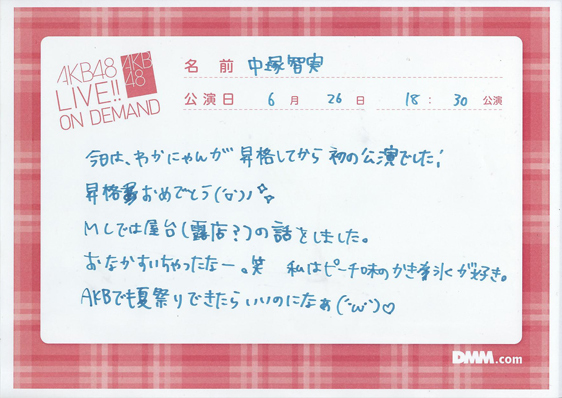 AKB48
LIVE!!
ON DEMAND
AKB
48
名 前 中塚智実
公演日 6 月 26 日 18 : 30 公演
今日は、わかにゃんが昇格してから初の公演でした!
昇格おめでとう(^o^)ノ
MCでは屋台(露店?)の話をしました。
おなかすいちゃったなー。笑 私はピーチ味のかき氷が好き。
AKBでも夏祭りできたらいいのになぁ(´ω`)♡
DMM.com